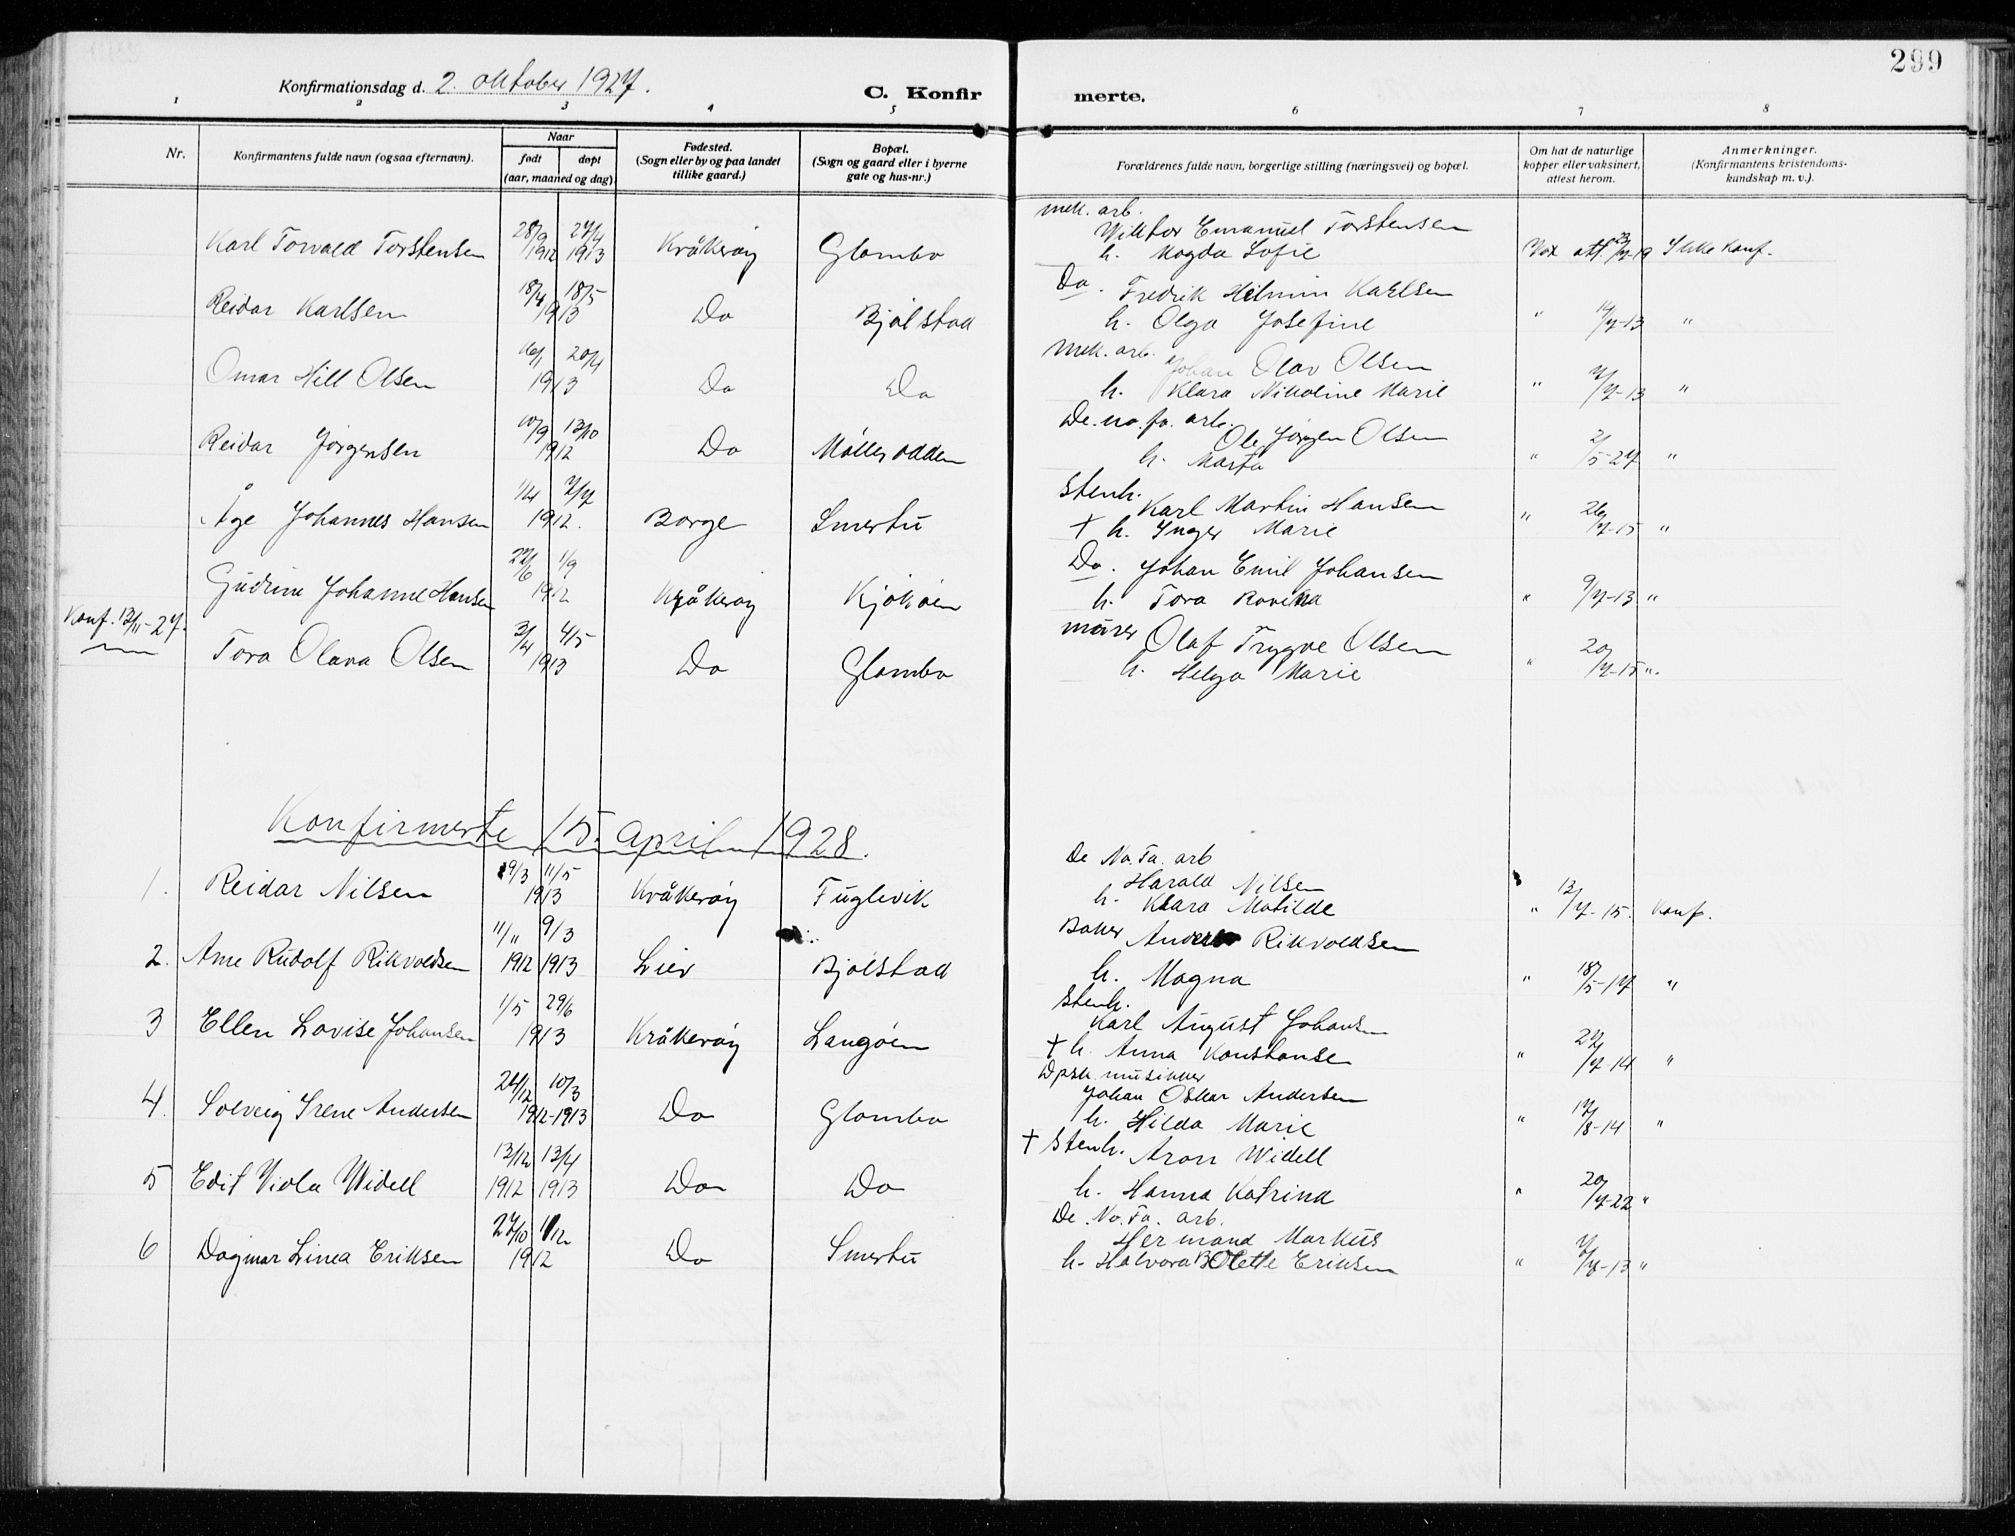 299
Konfirmationsdag d. 2. oktober 1927.
C. Konfir merte.
1 2 3 4 5 6 7 8
Nr.
Konfirmantens fulde navn (ogsaa efternavn).
Naar
født døpt
(aar, maaned og dag)
Fødested.
(Sogn eller by og paa landet
tillike gaard.)
Bopæl.
(Sogn og gaard eller i byerne
gate og hus-nr.)
Forældrenes fulde navn, borgerlige stilling (næringsvei) og bopæl.
Om hat de naturlige
kopper eller vaksinert,
attest herom.
Anmerkninger.
(Konfirmantens kristendoms-
kundskap m. v.).
mek. arb.
Karl Torvald Torstensen 28/9 1912 27/4 1913 Kråkerøy Glombo Wiktor Emanuel Torstensen
h. Magda Sofie Vax att 22/7-19 Ikke konf.
Reidar Karlsen 18/4 18/5 1913 Do Bjølstad Do. Fredrik Hilmin Karlsen
h. Olga Josefine " 14/7-13 "
mek. arb.
Omar Hill Olsen 16/1 20/4 1913 Do Do Johan Olav Olsen
h. Klara Nikoline Marie " 7/7-13 "
De. no. fa. arb.
Reidar Jørgensen 10/9 13/10 1912 Do Møllerodden Ole Jørgen Olsen
h. Marta " 2/5-27 "
Stenh.
Åge Johannes Hansen 1/4 7/7 1912. Borge Smertu Karl Martin Hansen
† h. Inger Marie " 26/7-15 "
Gudrun Johanne Hansen 22/6 1/9 1912 Kråkerøy Kjøkøen Do. Johan Emil Johansen
h. Tora Rovina " 9/7-13 "
Konf. 13/11-27.
murer
Tora Olava Olsen 3/4 4/5 1913 Do Glombo Olaf Trygve Olsen
h. Helga Marie " 20/7-15 ".
Konfirmerte 15. april 1928.
De No. Fa. arb
1. Reidar Nilsen 29/3 11/5 1913 Kråkerøy Fuglevik Harald Nilsen
h. Klara Matilde " 12/7-15. Konf.
Baker
2. Arne Rudolf Rikvoldsen 11/11 1912 9/3 1913 Lier Bjølstad Anders Rikvoldsen
h. Magna " 18/5-17 "
Stenh.
3 Ellen Lovise Johansen 1/5 29/6 1913 Kråkerøy Langøen Karl August Johansen
† h. Anna Konstanse " 22/7-14 "
Dpsk. musikker
4. Solveig Irene Andersen 24/12 10/3 1912-1913 Do Glombo Johan Oskar Andersen
h. Hilda Marie " 17/8-14 "
† Stenh. Aron Widell
5 Edit Viola Widell 13/12 1912 13/4 1913 Do Do
h. Hanna Katrina " 20/7-22 "
De. No. Fa. arb.
6 Dagmar Linea Eriksen 27/10 1/12 1912 Do Smertu Hermand Markus
h. Halvora Bolette Eriksen " 7/7-13 "